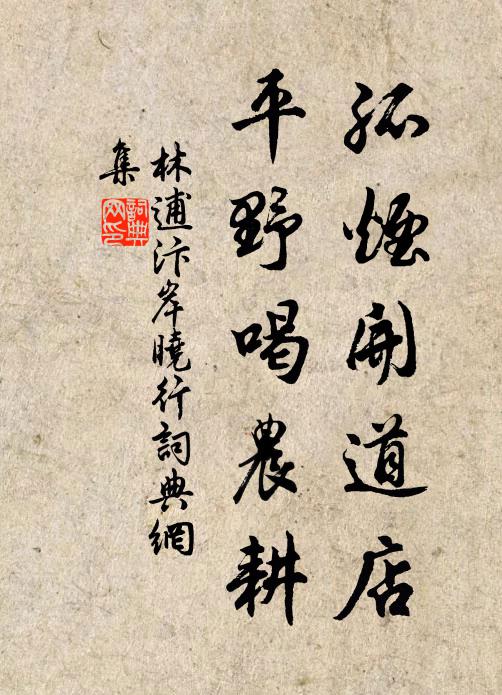 孤煙開道店
平野喝農耕
林逋汴岸曉行詞典網
集
詞典
网印